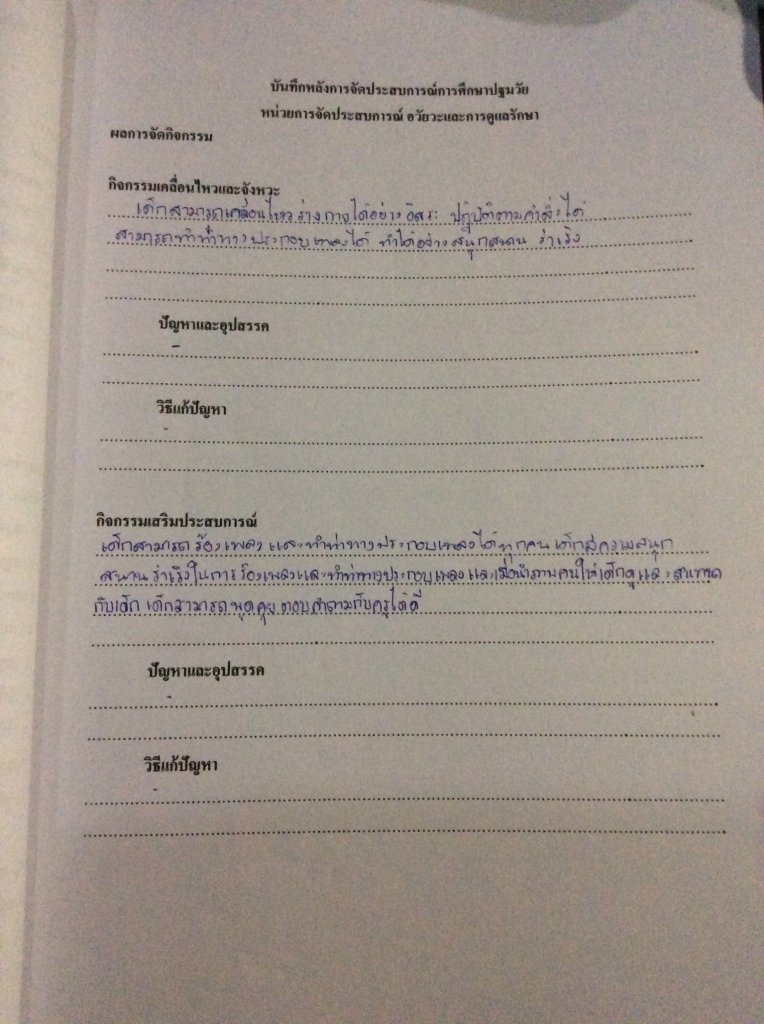 บันทึกหลังการจัดประสบการณ์การศึกษาปฐมวัย
หน่วยการจัดประสบการณ์ อวัยวะและการดูแลรักษา
ผลการจัดกิจกรรม
กิจกรรมเคลื่อนไหวและจังหวะ
เด็กสามารถเคลื่อนไหวร่างกายได้อย่างอิสระ ปฏิบัติตามคำสั่งได้
สามารถทำท่าทางประกอบเพลงได้ ทำได้อย่างสนุกสนาน ร่าเริง
ปัญหาและอุปสรรค
-
วิธีแก้ปัญหา
-
กิจกรรมเสริมประสบการณ์
เด็กสามารถร้องเพลง และทำท่าทางประกอบเพลงได้ทุกคน เด็กมีความสนุก
สนานร่าเริงในการร้องเพลงและทำท่าทางประกอบเพลง และเมื่อนำภาพคนให้เด็กดูและสนทนา
กับเด็ก เด็กสามารถพูดคุย ตอบคำถามกับครูได้ดี
ปัญหาและอุปสรรค
-
วิธีแก้ปัญหา
-